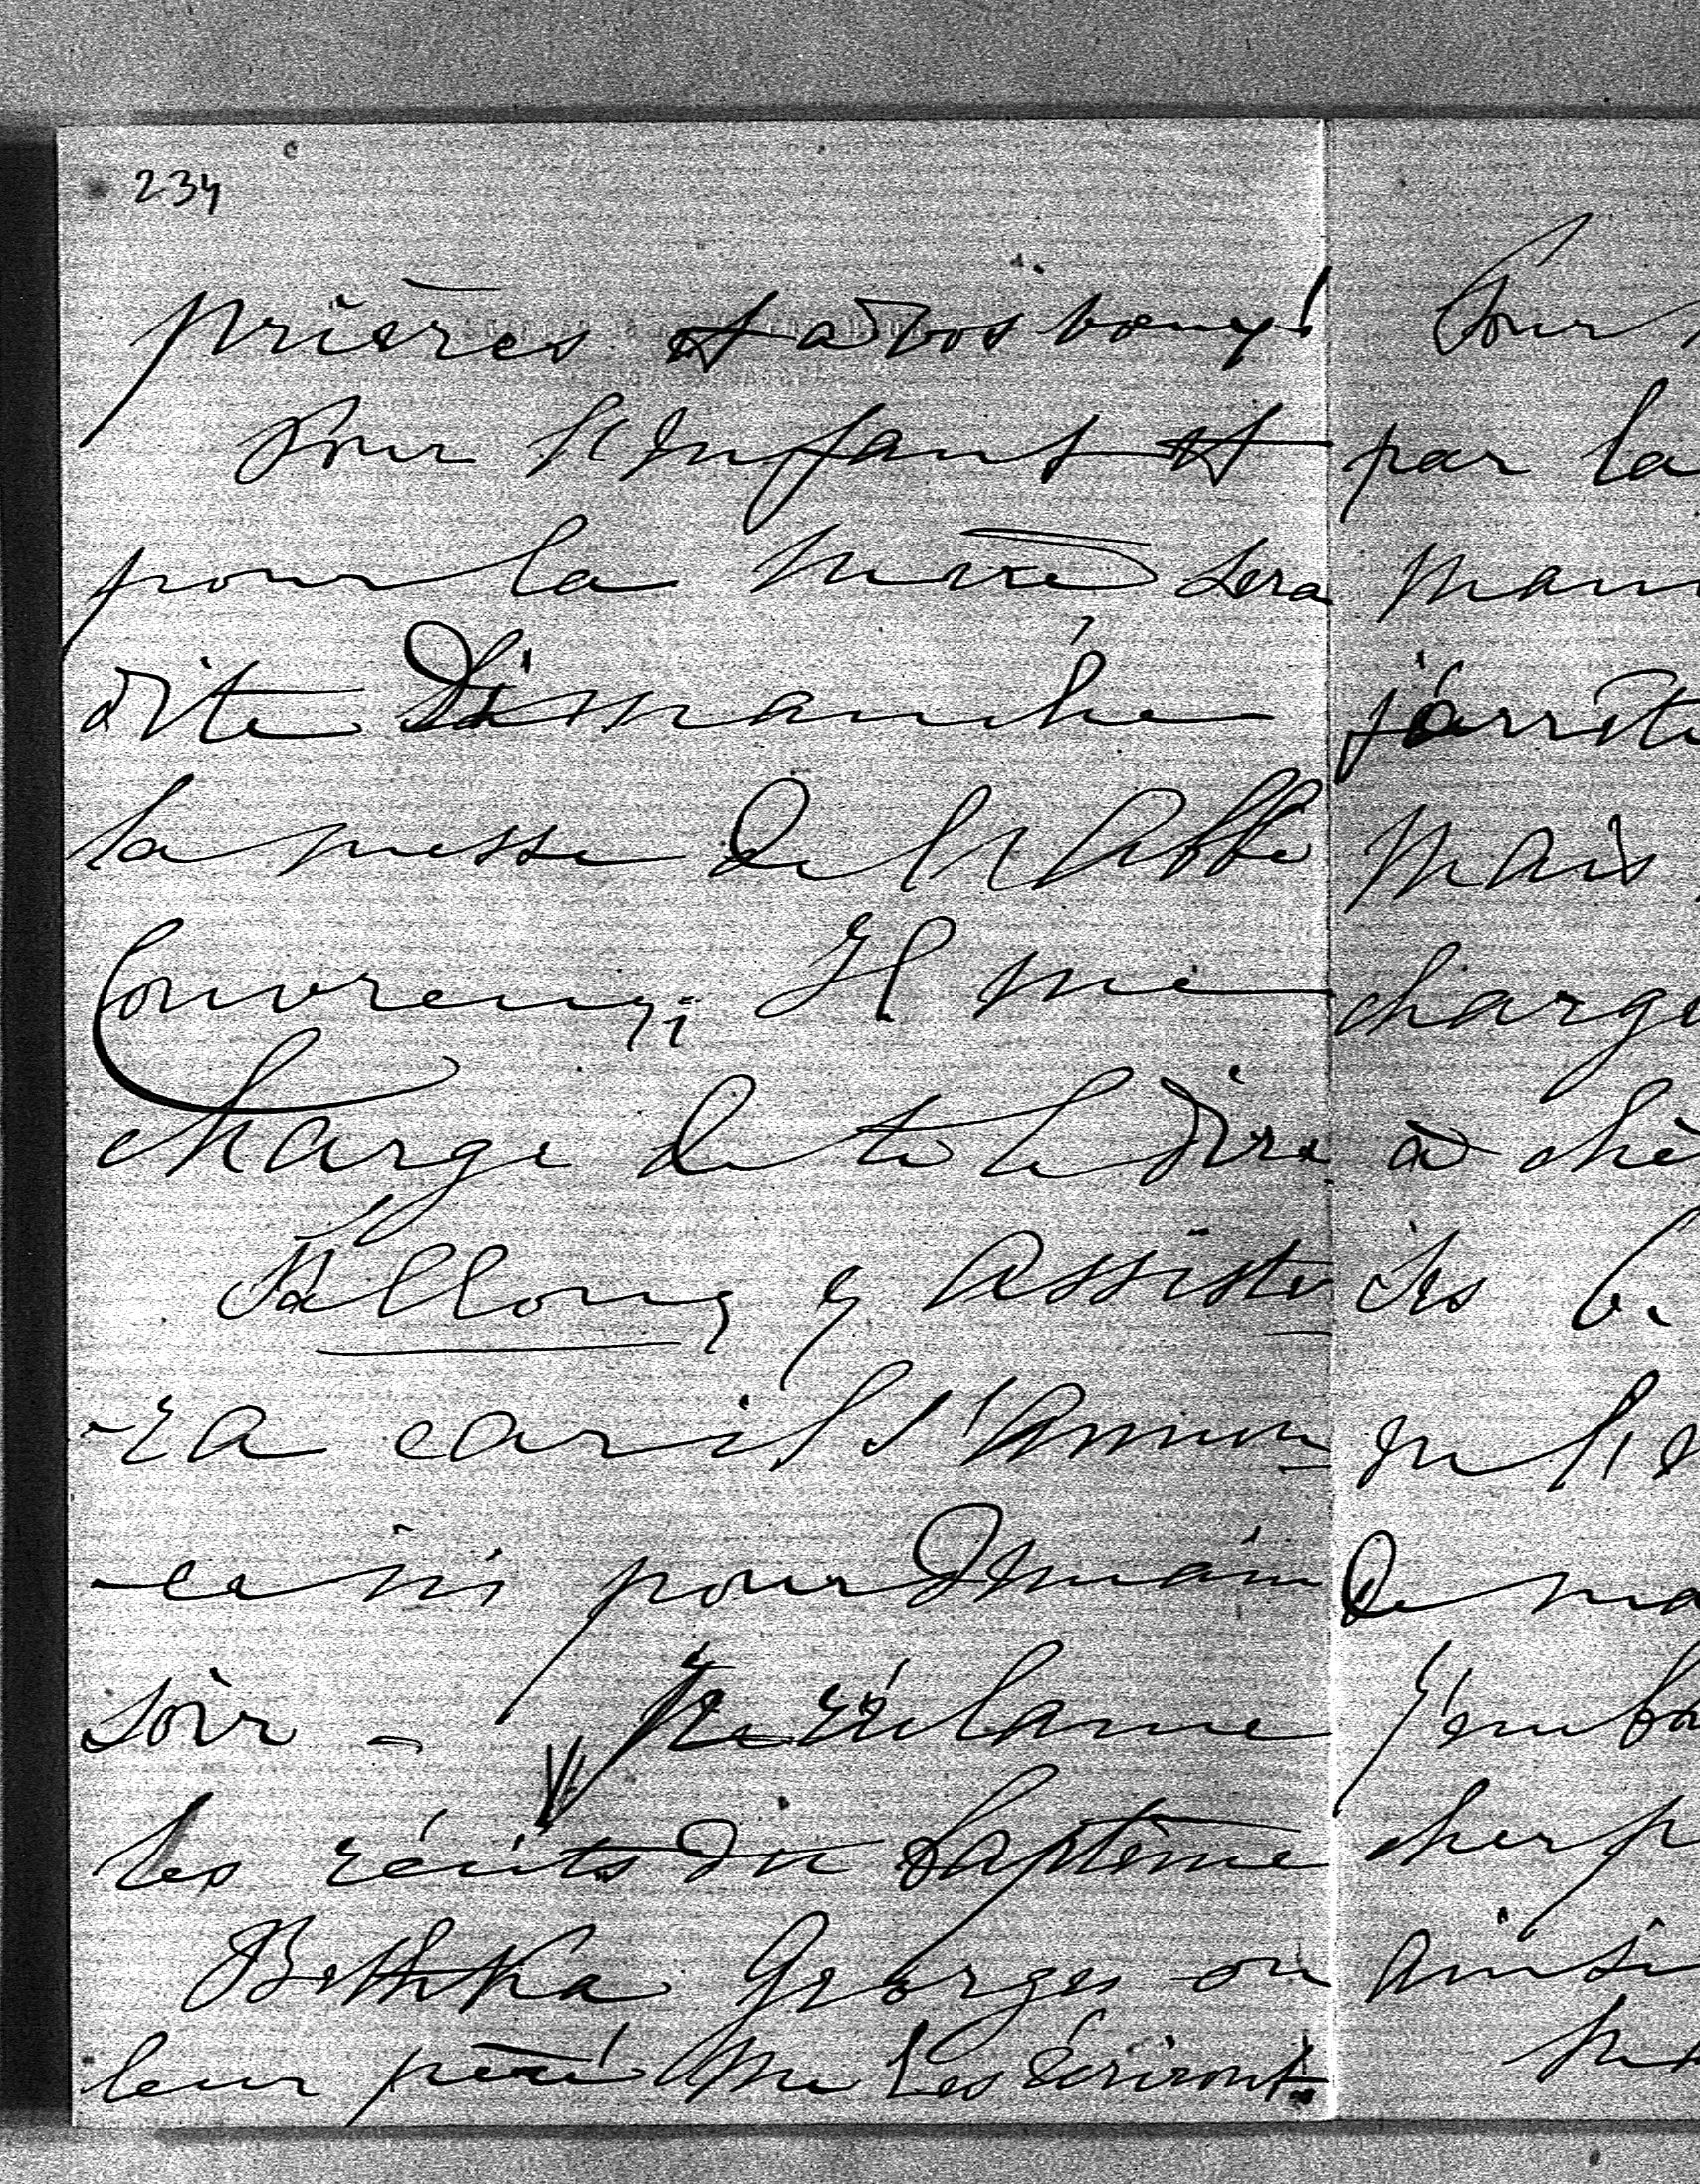 234
prières et à vos vœux!
Pour l'Enfant et
pour la mère sera
dite Dimanche
la messe de l'Abbé
Couvreux; Il me
charge de te le dire
Falloux y assiste
-ra car il s'annon
-ce ici pour Demain
soir - Je réclame
les récits du baptême
Bethka Georges ou
leur père me les écriront.
Pour
par la
man
j'arrête
Mais
charge
à chè
des
en
De ma
J'emb
cher p
Ainsi